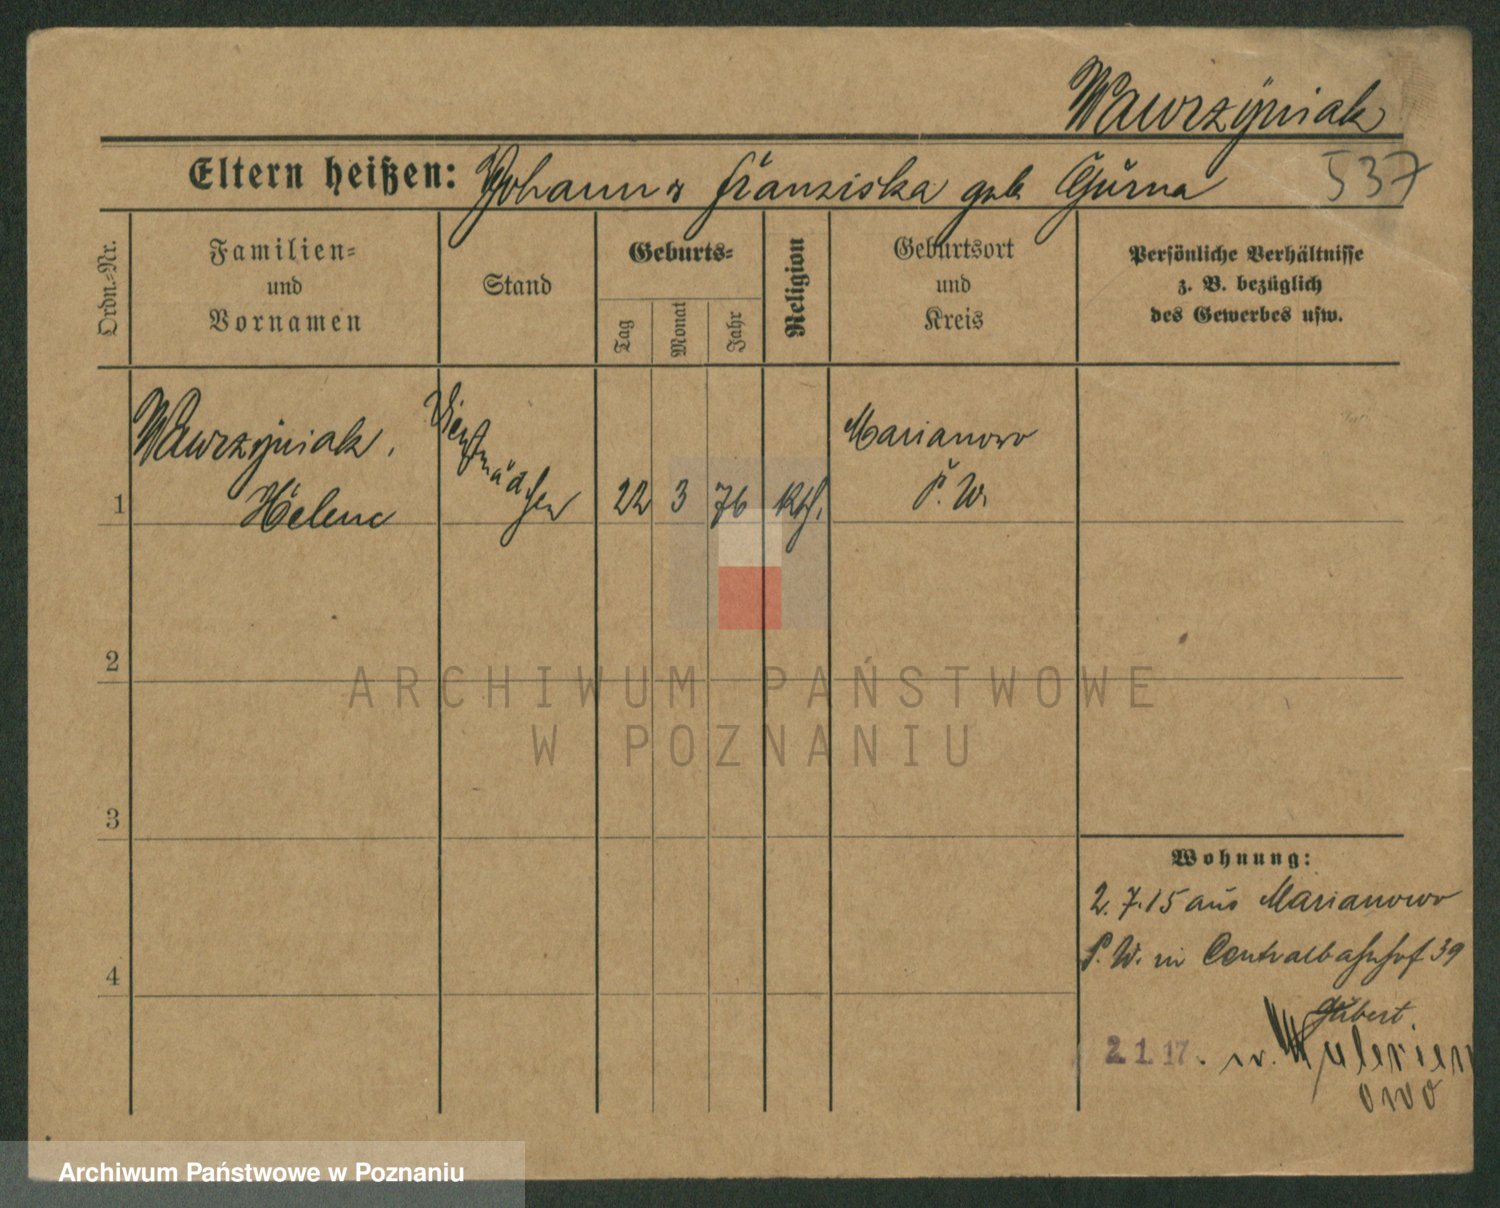 Wawrzyniak
Eltern heißen: Johann & Franziska geb. Gurna 537
Ordn.-Nr.
Familien-
und
Vornamen
Stand
Geburts-
Tag
Monat
Jahr
Religion
Geburtsort
und
Kreis
Persönliche Verhältnisse
z. B. bezüglich
des Gewerbes usw.
Wawrzyniak,
1 Helene
Dienstmädchen
22 3 76 kth.
Marianowo
P. W.
2
3
4
ARCHIWUM PAŃSTWOWE
W POZNANIU
Wohnung:
2.7.15 aus Marianowo
P. W. in Centralbahnhof 39
2.1.17. n.
owo
Archiwum Państwowe w Poznaniu